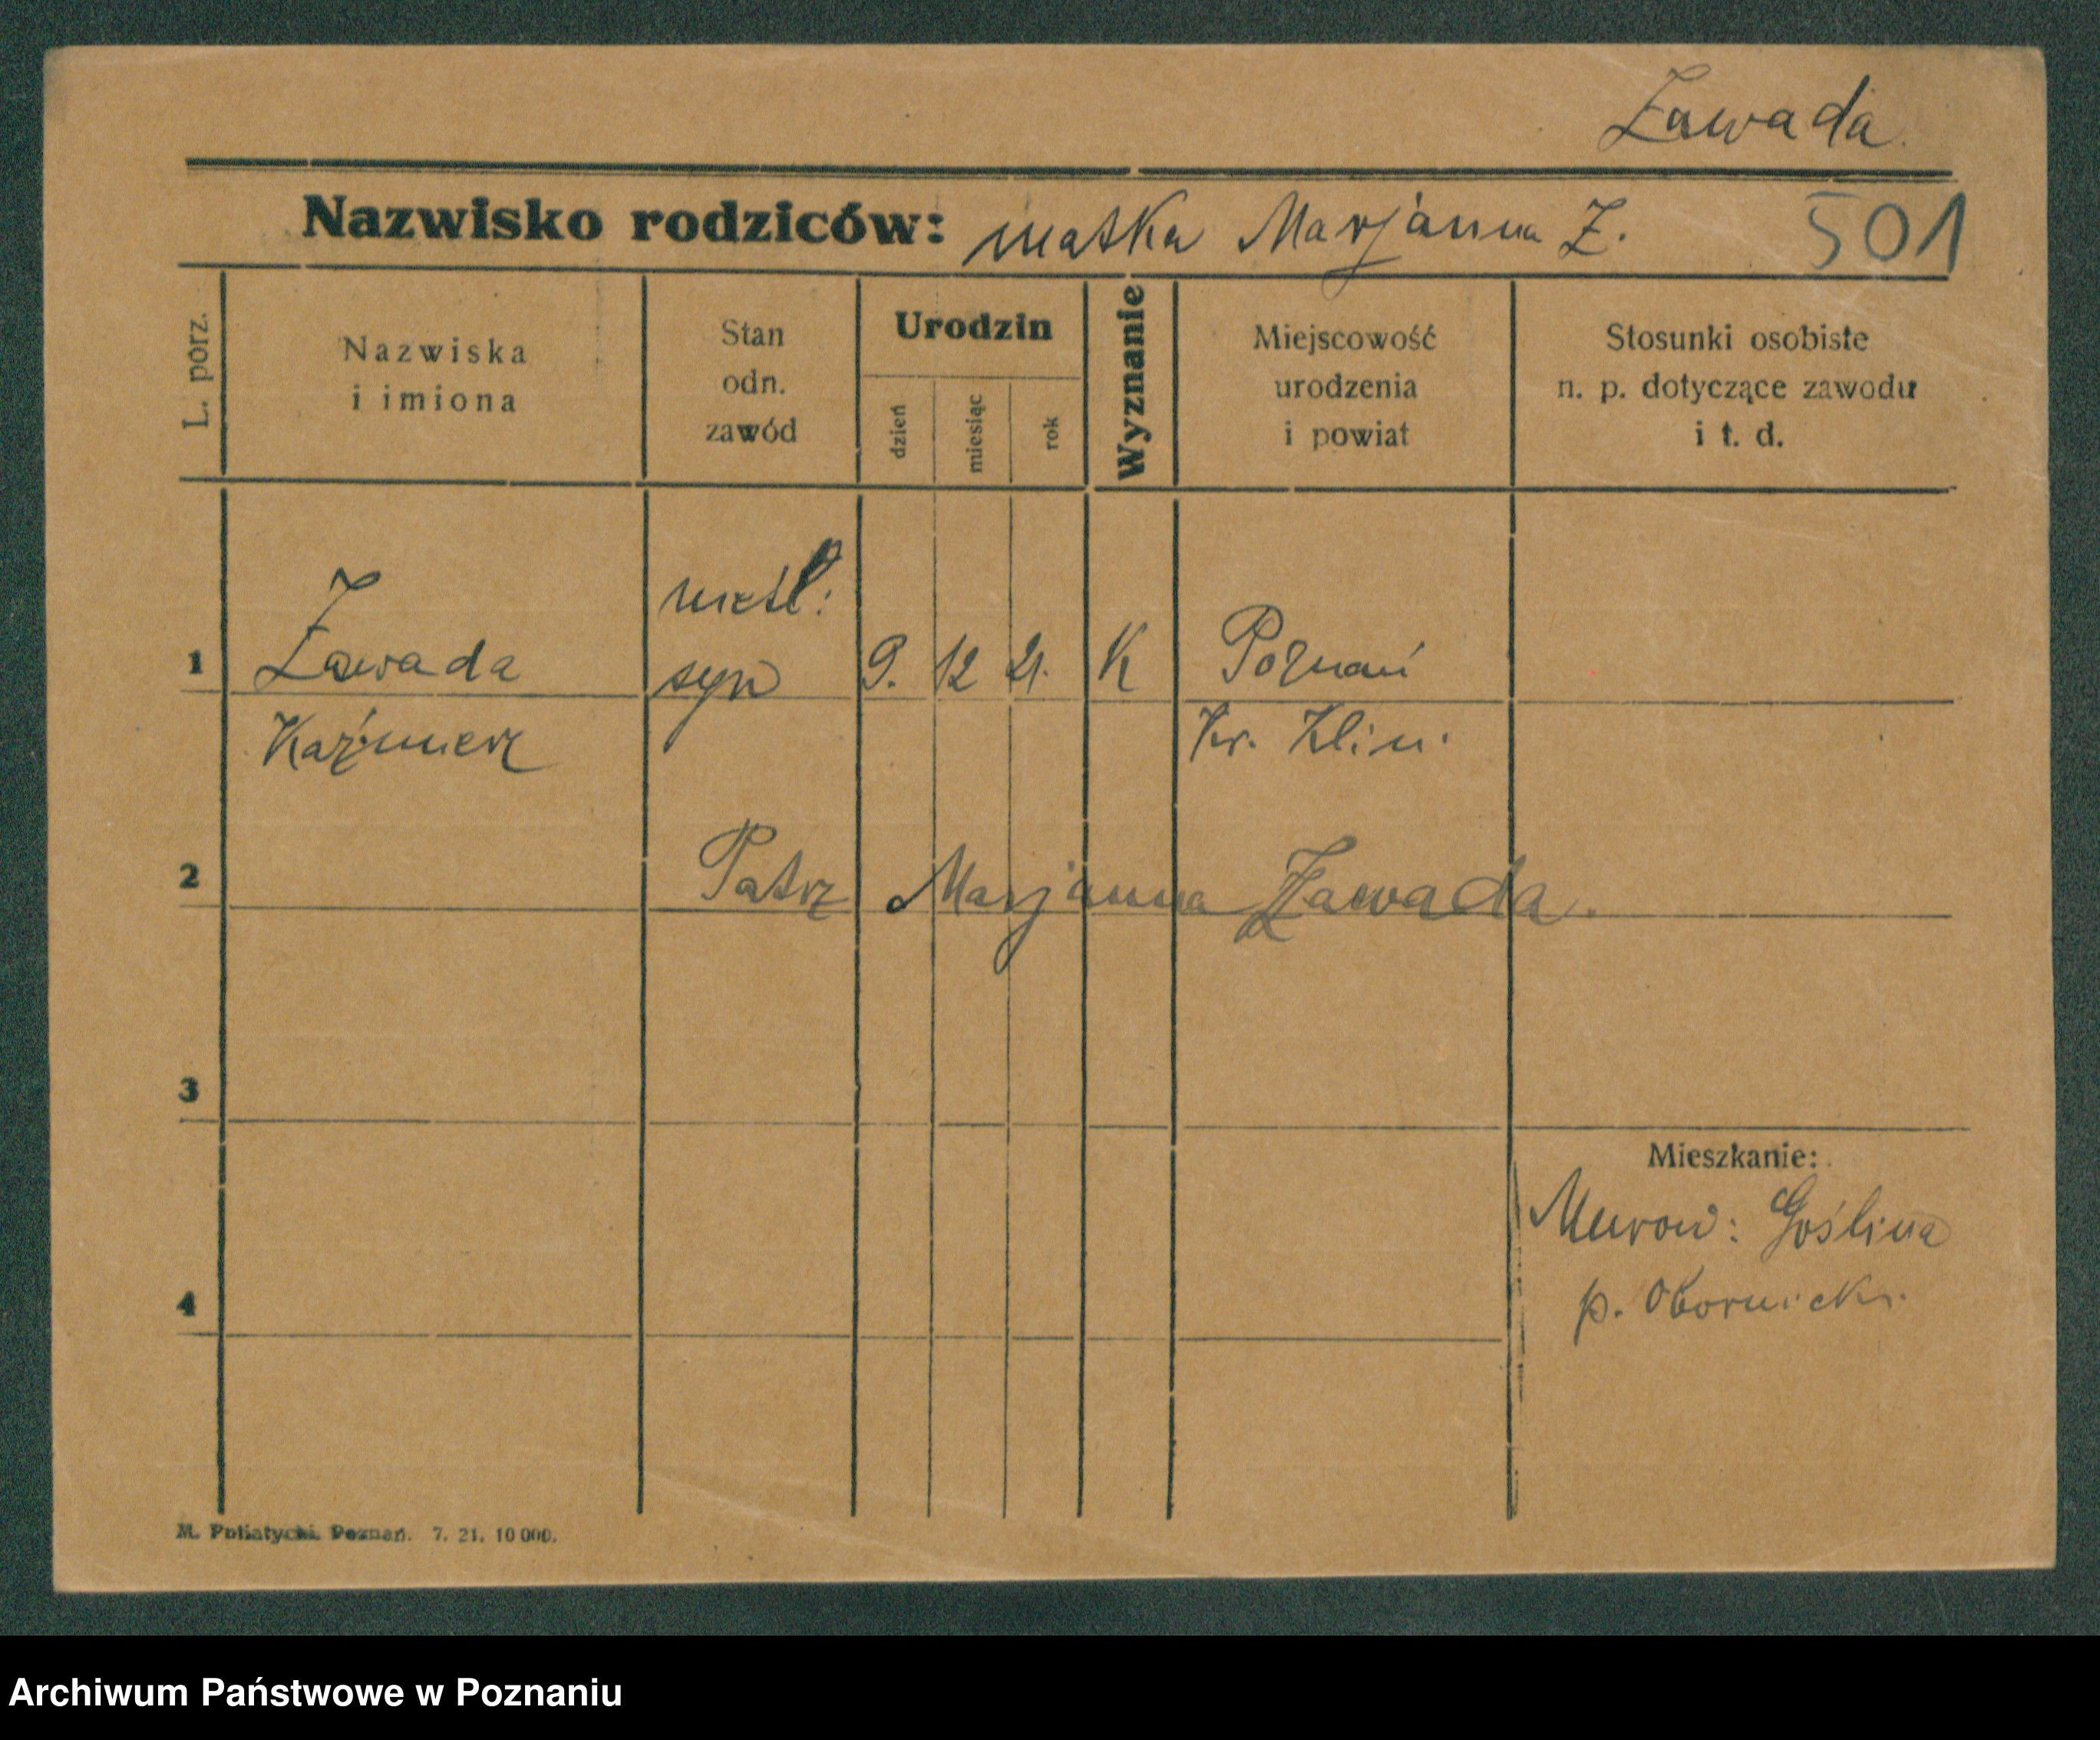 Zawada.
Nazwisko rodziców: matka Marjanna Z. 501
L. porz.
Nazwiska
i imiona
Stan
odn.
zawód
Urodzin
dzień
miesiąc
rok
Wyznanie
Miejscowość
urodzenia
i powiat
Stosunki osobiste
n. p. dotyczące zawodu
i t. d.
nieśl:
1 Zawada syn 9. 12 21. K Poznań
Kaźmierz Kr. Klin.
2 Patrz Marjanna Zawada.
3
Mieszkanie:
Murow: Goślina
4 p. Obornicki.
M. Putiatycki, Poznań. 7. 21. 10 000.
Archiwum Państwowe w Poznaniu